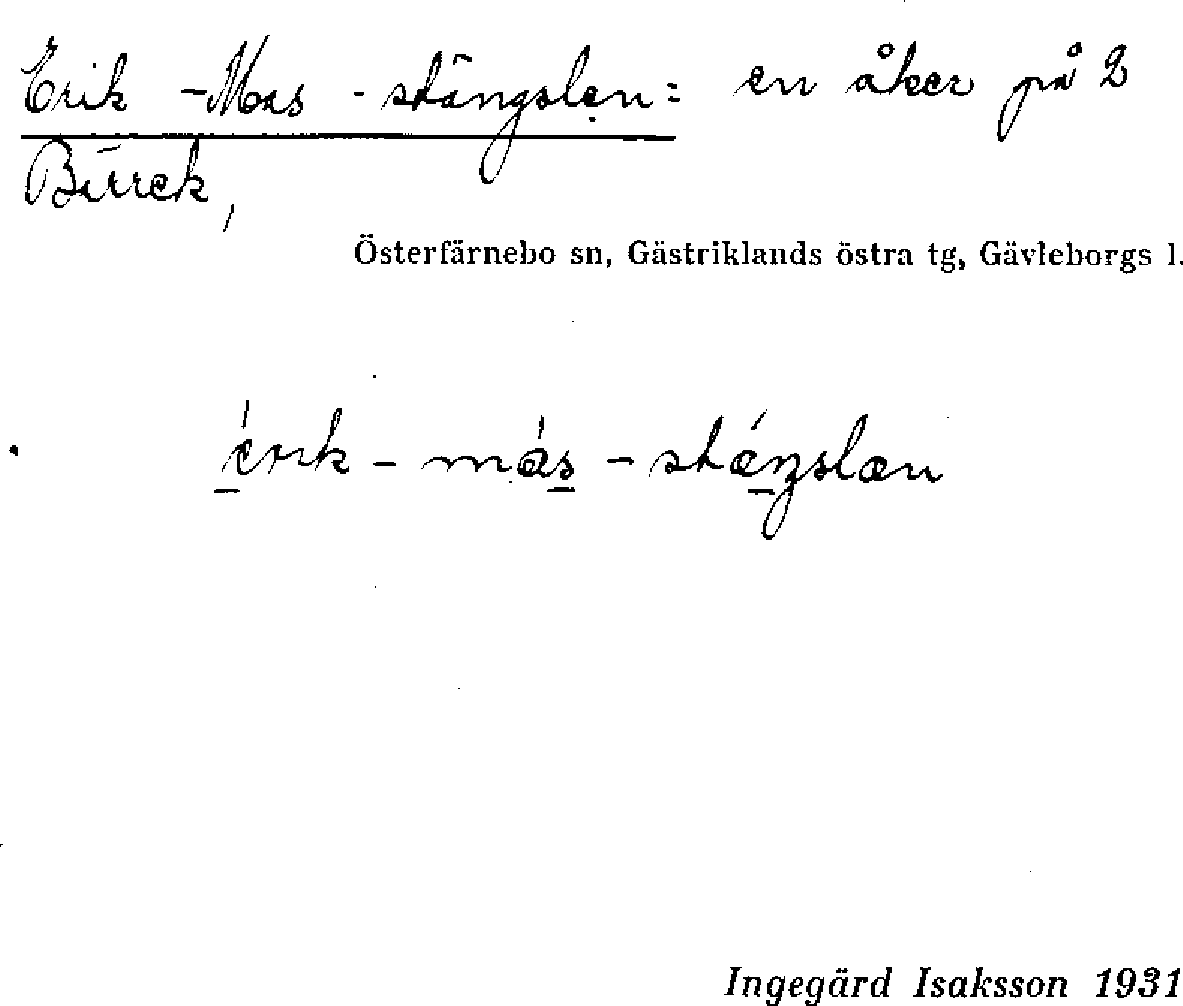 Erik-Mas-stängslen: en åker på 2
Bärrek,
Österfärnebo sn, Gästriklands östra tg, Gävleborgs l.
érik-más-stéŋslæn
Ingegärd Isaksson 1931